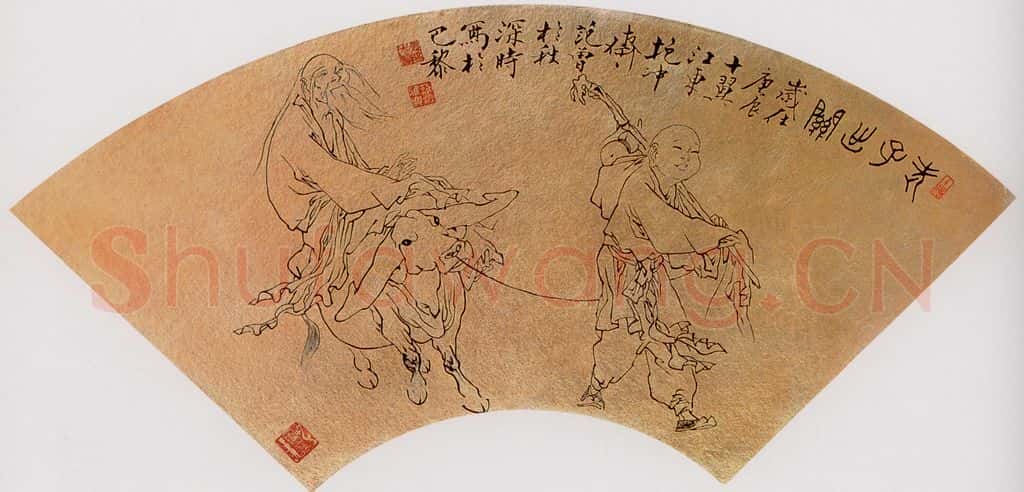 老子出關
歲在
庚辰
十翼
江東
抱冲
范曾
於秋
深時
寫於
巴黎
Shufawang.CN